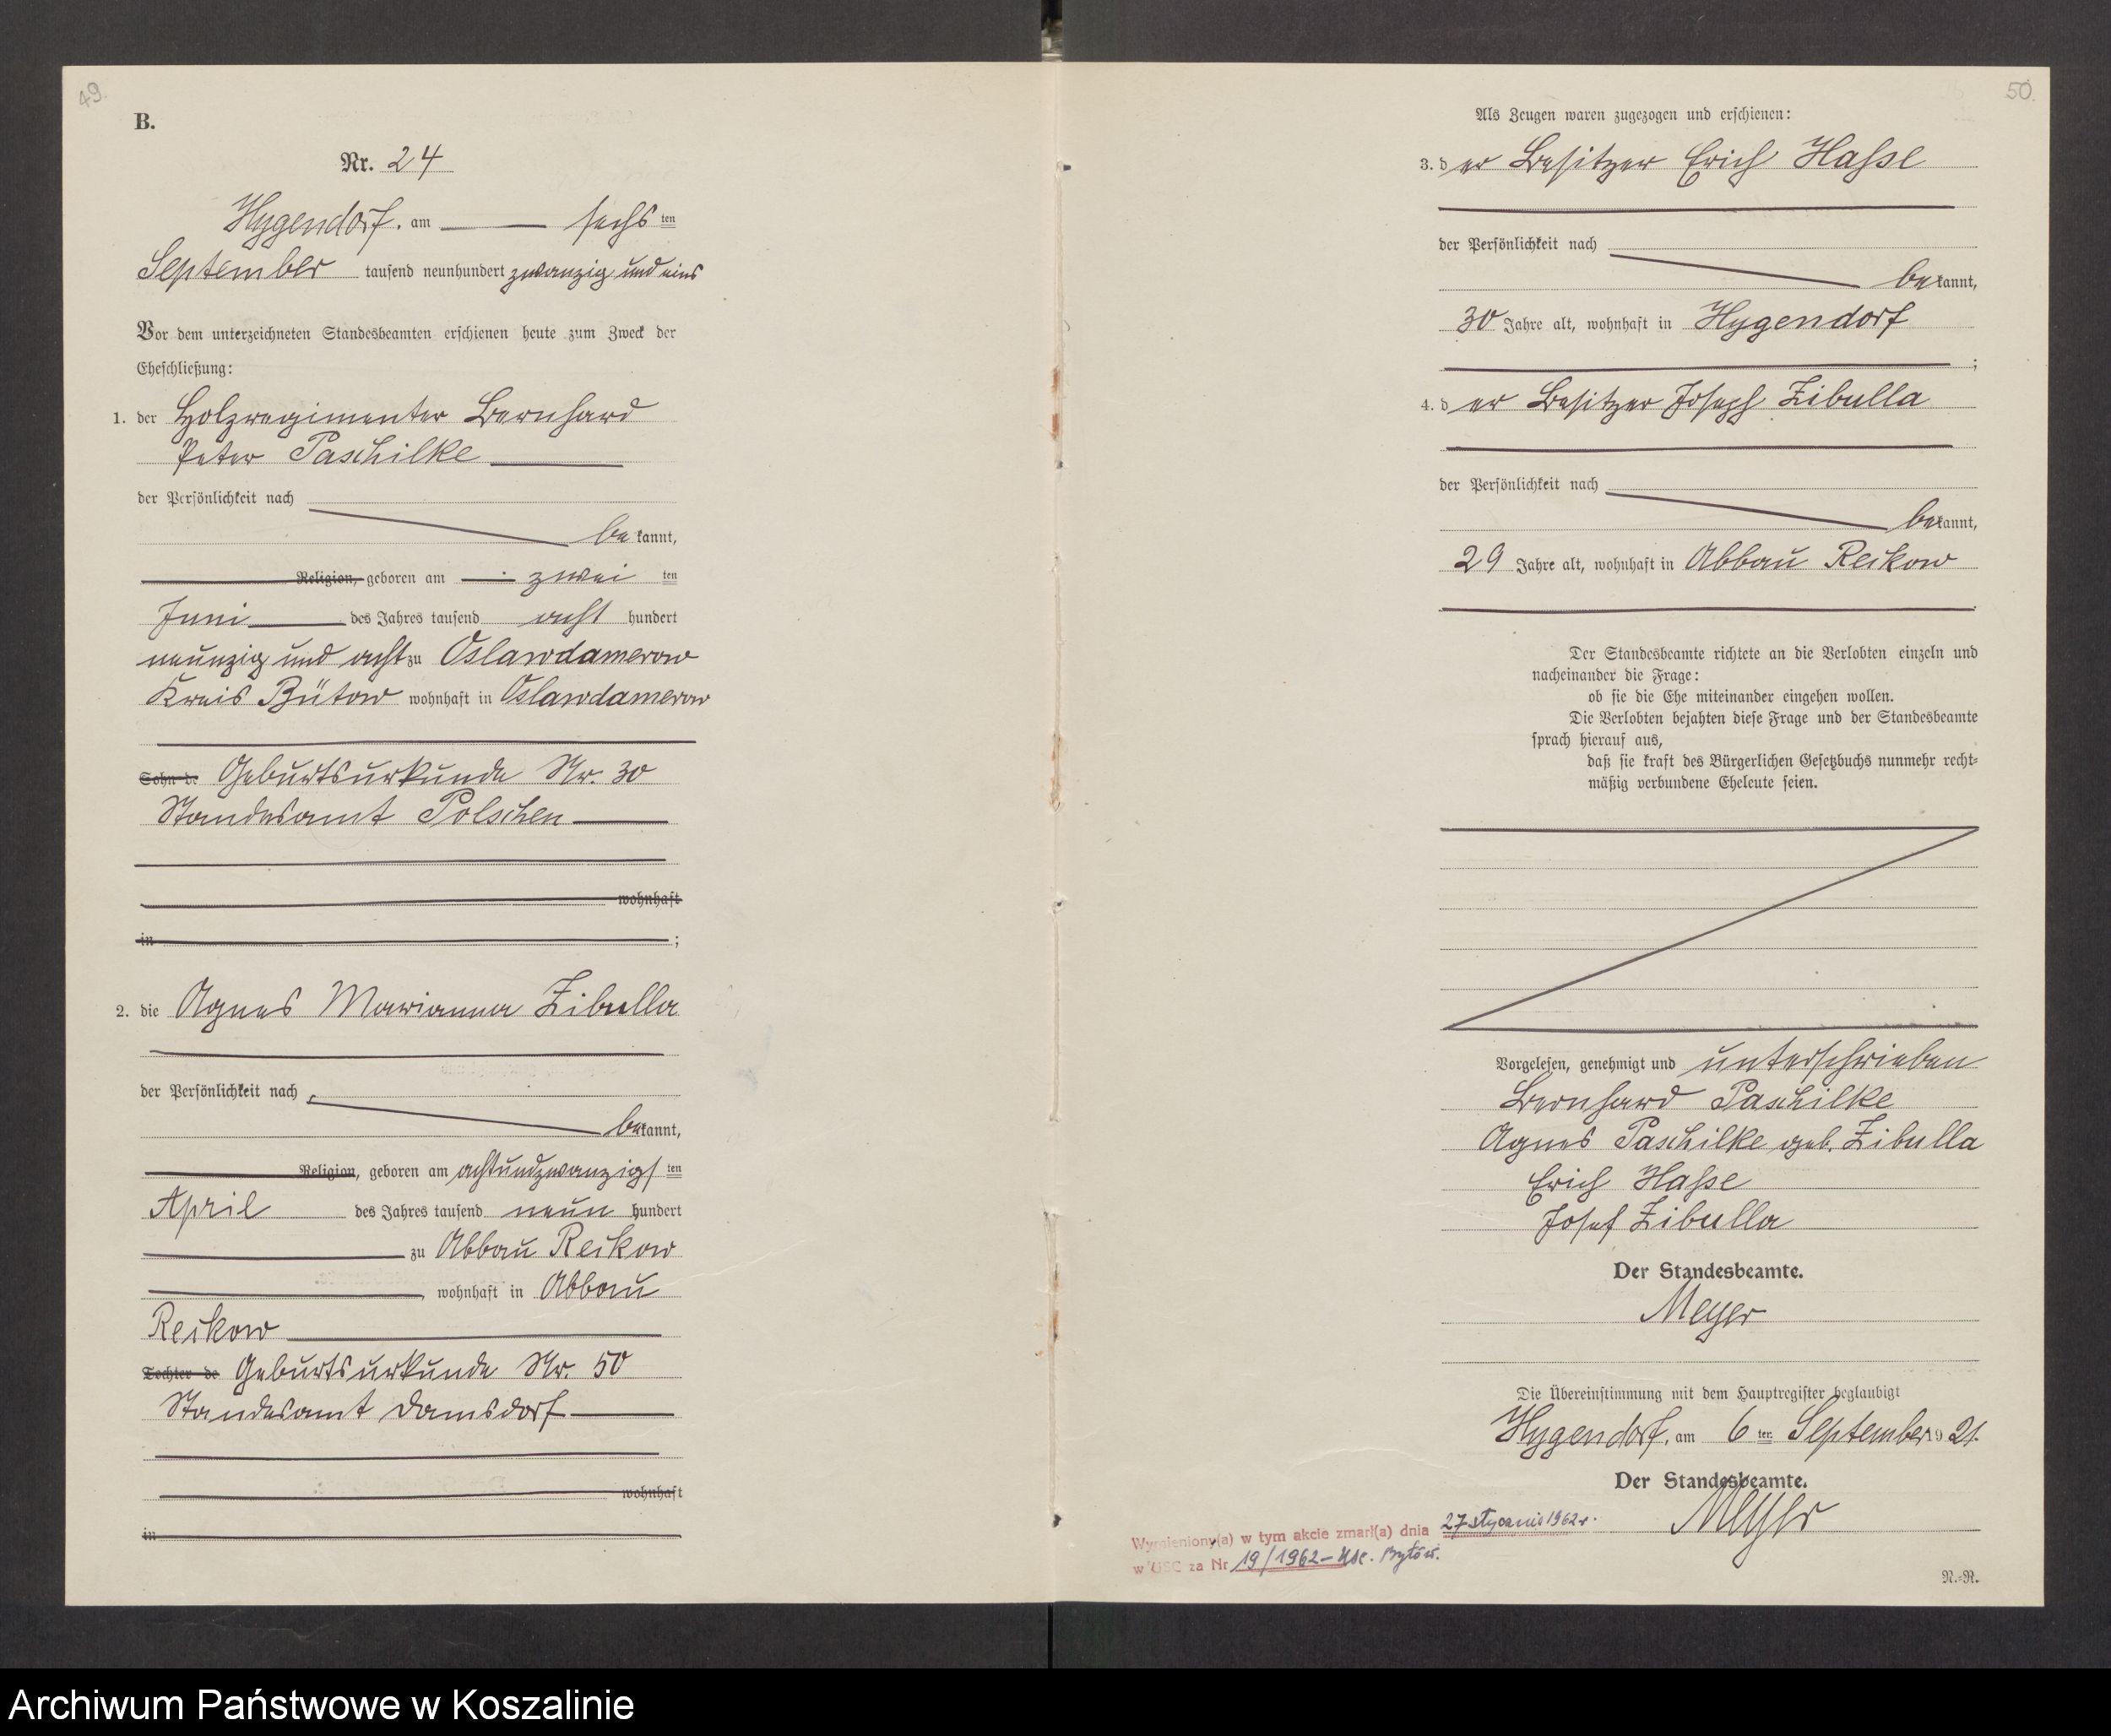 49.
B.
Nr. 24
Hygendorf. am sechs ten
September tausend neunhundert zwanzig und eins
Vor dem unterzeichneten Standesbeamten erschienen heute zum Zweck der
Eheschließung:
1. der Holzregimenter Bernhard
Peter Paschilke
der Persönlichkeit nach
be kannt,
Religion, geboren am zwei ten
Juni des Jahres tausend acht hundert
neunzig und acht zu Oslawdamerow
Kreis Bütow wohnhaft in Oslawdamerow
Sohn de Geburtsurkunde Nr. 30
Standesamt Polschen
wohnhaft
in ;
2. die Agnes Marianna Zibulla
der Persönlichkeit nach
bekannt,
Religion, geboren am achtundzwanzigs ten
April des Jahres tausend neun hundert
zu Abbau Reckow
, wohnhaft in Abbau
Reckow
Tochter de Geburtsurkunde Nr. 50
Standesamt Damsdorf
wohnhaft
in
50.
Als Zeugen waren zugezogen und erschienen:
3. d er Besitzer Erich Haßse
der Persönlichkeit nach
bekannt,
30 Jahre alt, wohnhaft in Hygendorf
;
4. d er Besitzer Joseph Zibulla
der Persönlichkeit nach
bekannt,
29 Jahre alt, wohnhaft in Abbau Reckow
Der Standesbeamte richtete an die Verlobten einzeln und
nacheinander die Frage:
ob sie die Ehe miteinander eingehen wollen.
Die Verlobten bejahten diese Frage und der Standesbeamte
sprach hierauf aus,
daß sie kraft des Bürgerlichen Gesetzbuchs nunmehr recht-
mäßig verbundene Eheleute seien.
Vorgelesen, genehmigt und unterschrieben
Bernhard Paschilke
Agnes Paschilke geb. Zibulla
Erich Haßse
Josef Zibulla
Der Standesbeamte.
Meyer
Die Übereinstimmung mit dem Hauptregister beglaubigt
Hygendorf, am 6 ten September 19 21.
Der Standesbeamte.
Meyer
Wymieniony(a) w tym akcie zmarł(a) dnia 27 stycznia 1962 r.
w USC za Nr 19/1962 – Usc. Bytów.
N.-R.
Archiwum Państwowe w Koszalinie